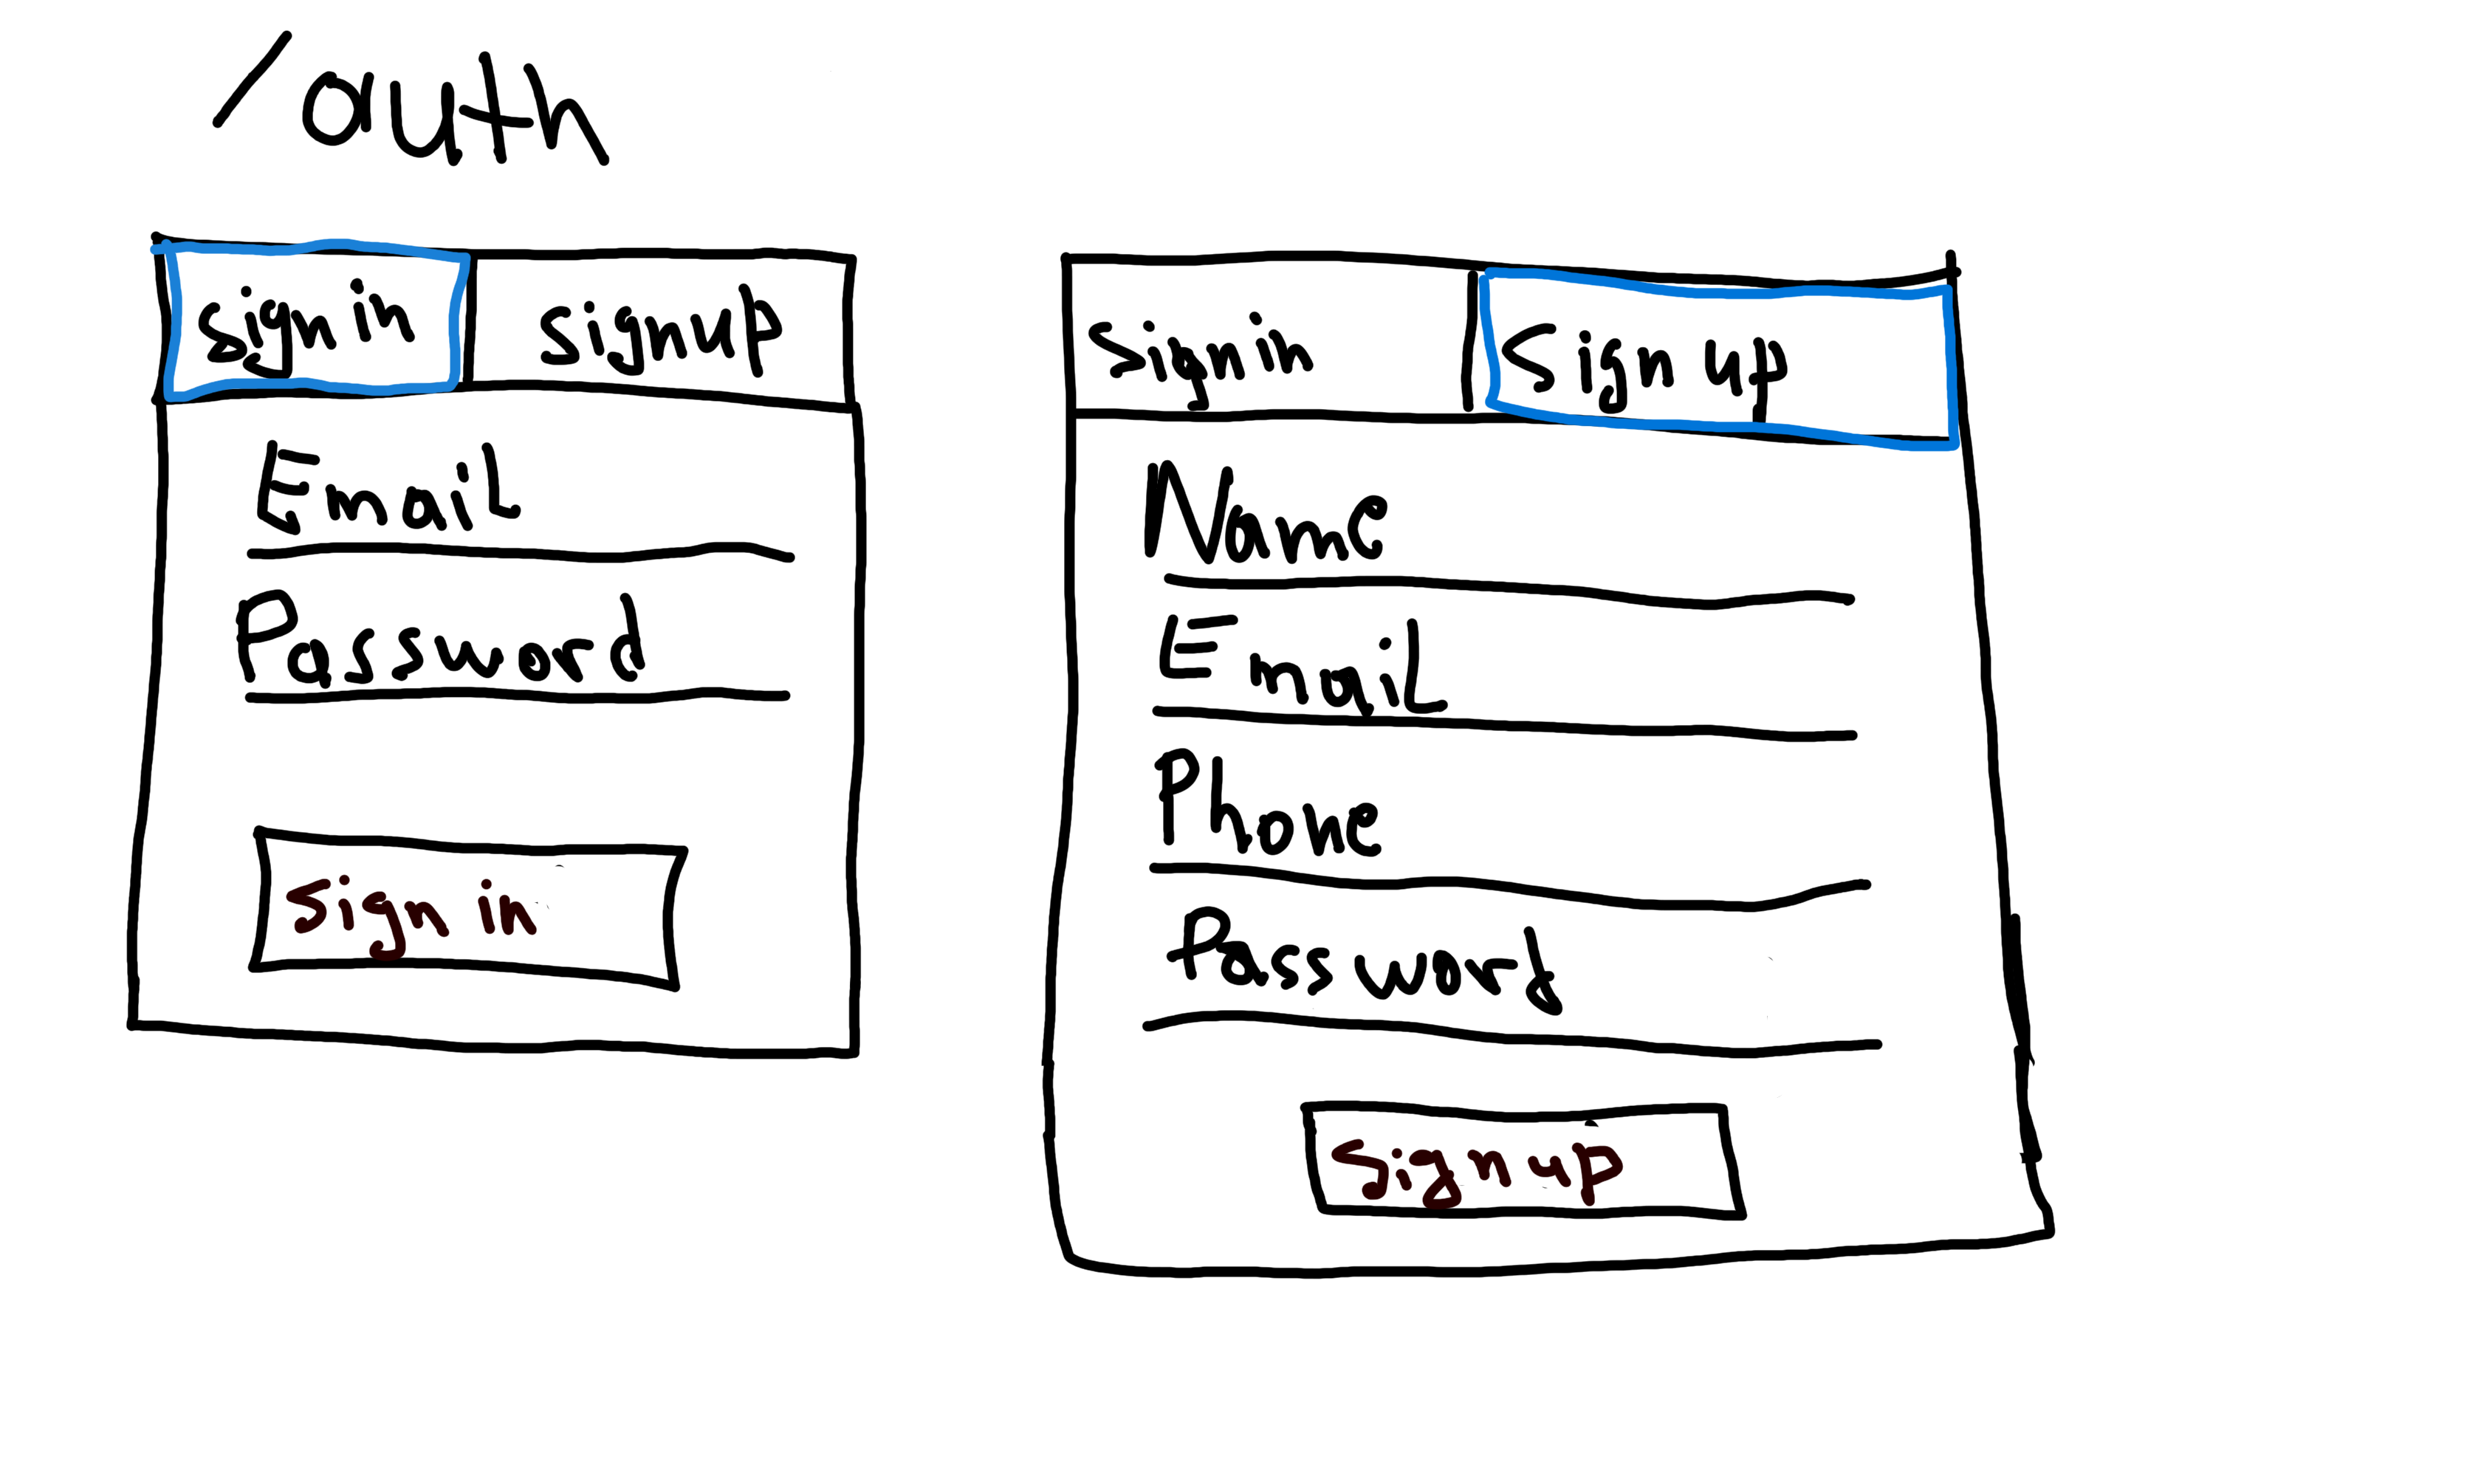 /auth
Sign in
Signup
Email
Password
Sign in
Sign in
Sign up
Name
Email
Phone
Password
Sign up